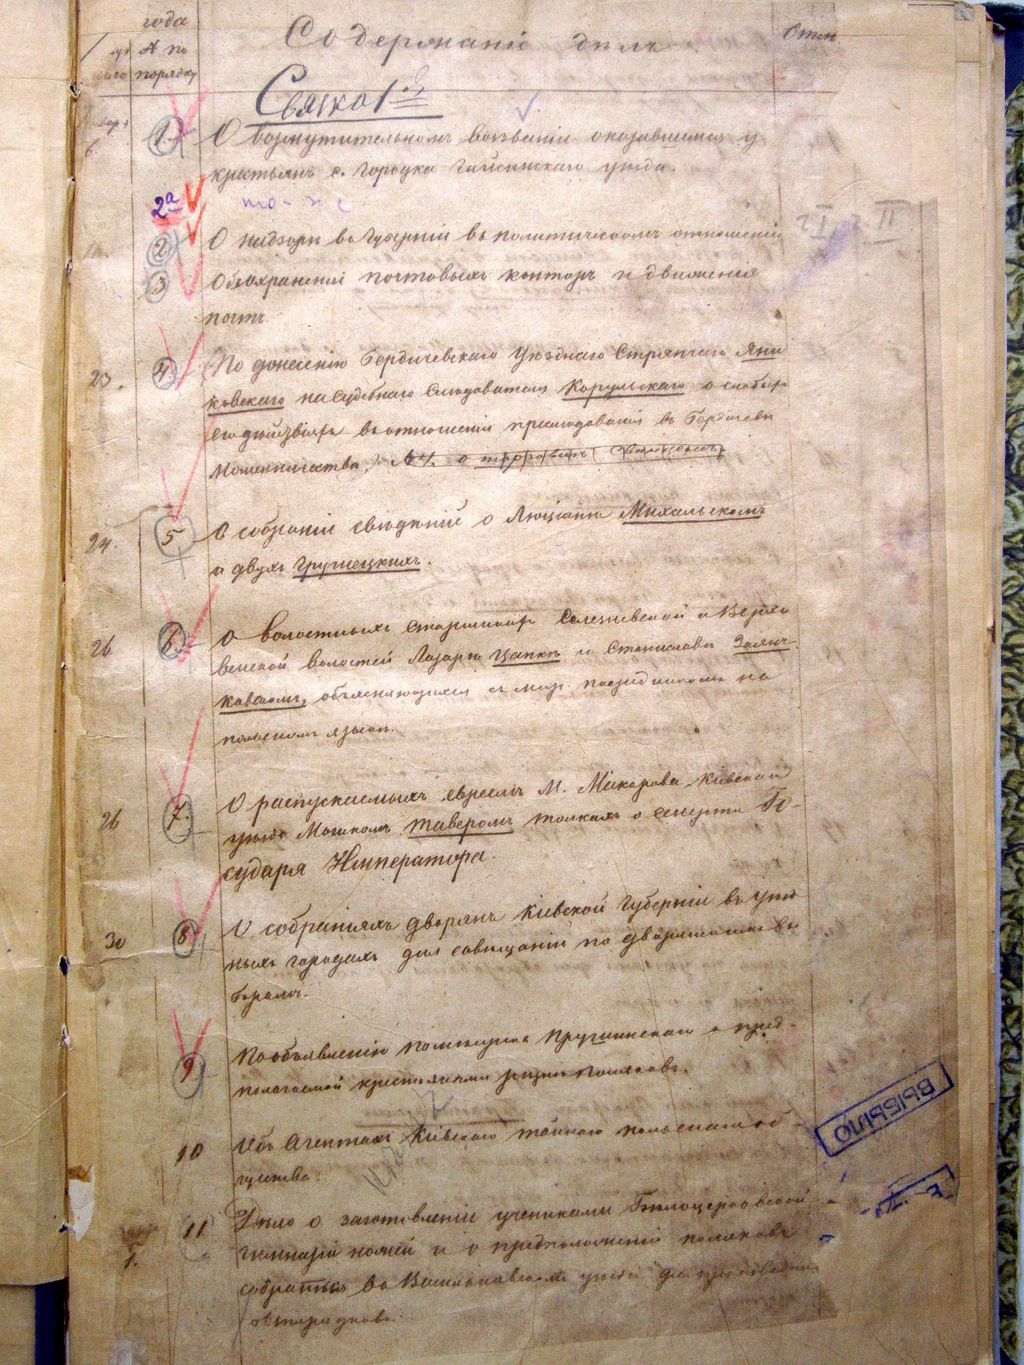 года
№ по
порядку
Содержаніе дѣлъ
Отм
Связка 1я
1. О возмутительномъ воззваніи оказавшемся у
крестьянъ с. Городка Гайсинскаго уѣзда.
2а то-же
2 О надзорѣ въ Губерніи въ политическомъ отношеніи
I, II
3 Объ охраненіи почтовыхъ конторъ и движенія
почтъ
23. 4. По донесенію Бердичевскаго Уѣзднаго Стряпчаго Яни
ковскаго на Судебнаго Слѣдователя Корульскаго о слабыхъ
его дѣйствіяхъ въ отношеніи преслѣдованія въ Бердичевѣ
Мошенничества,
24. 5 О собраніи свѣдѣній о Люціанѣ Михальскомъ
и двухъ Грушецкихъ.
26 6. О Волостныхъ Старшинахъ
волостей Лазарѣ Цапкѣ и Станиславѣ Залю-
ковскомъ, объясняющихся съ мир. посредникомъ на
польскомъ языкѣ.
26 7. О распускаемыхъ евреемъ М. Макарова Кіевскаго
уѣзда Мошкомъ Таверомъ толкахъ о смерти Го-
сударя Императора.
30 8 О собраніяхъ дворянъ Кіевской Губерніи въ уѣзд
ныхъ городахъ для совѣщаній по дворянскимъ вы
борамъ.
9 По объявленію помѣщика Пружинскаго о пред-
полагаемой крестьянами рѣзни поляковъ.
10 Объ Агентахъ Кіевскаго тайнаго польскаго об-
щества.
ВЫБЫЛО
1. 11 Дѣло о заготовленіи учениками Бѣлоцерковской
гимназіи ножей и о предположеніи поляковъ
собраться въ Васильковскомъ уѣздѣ для